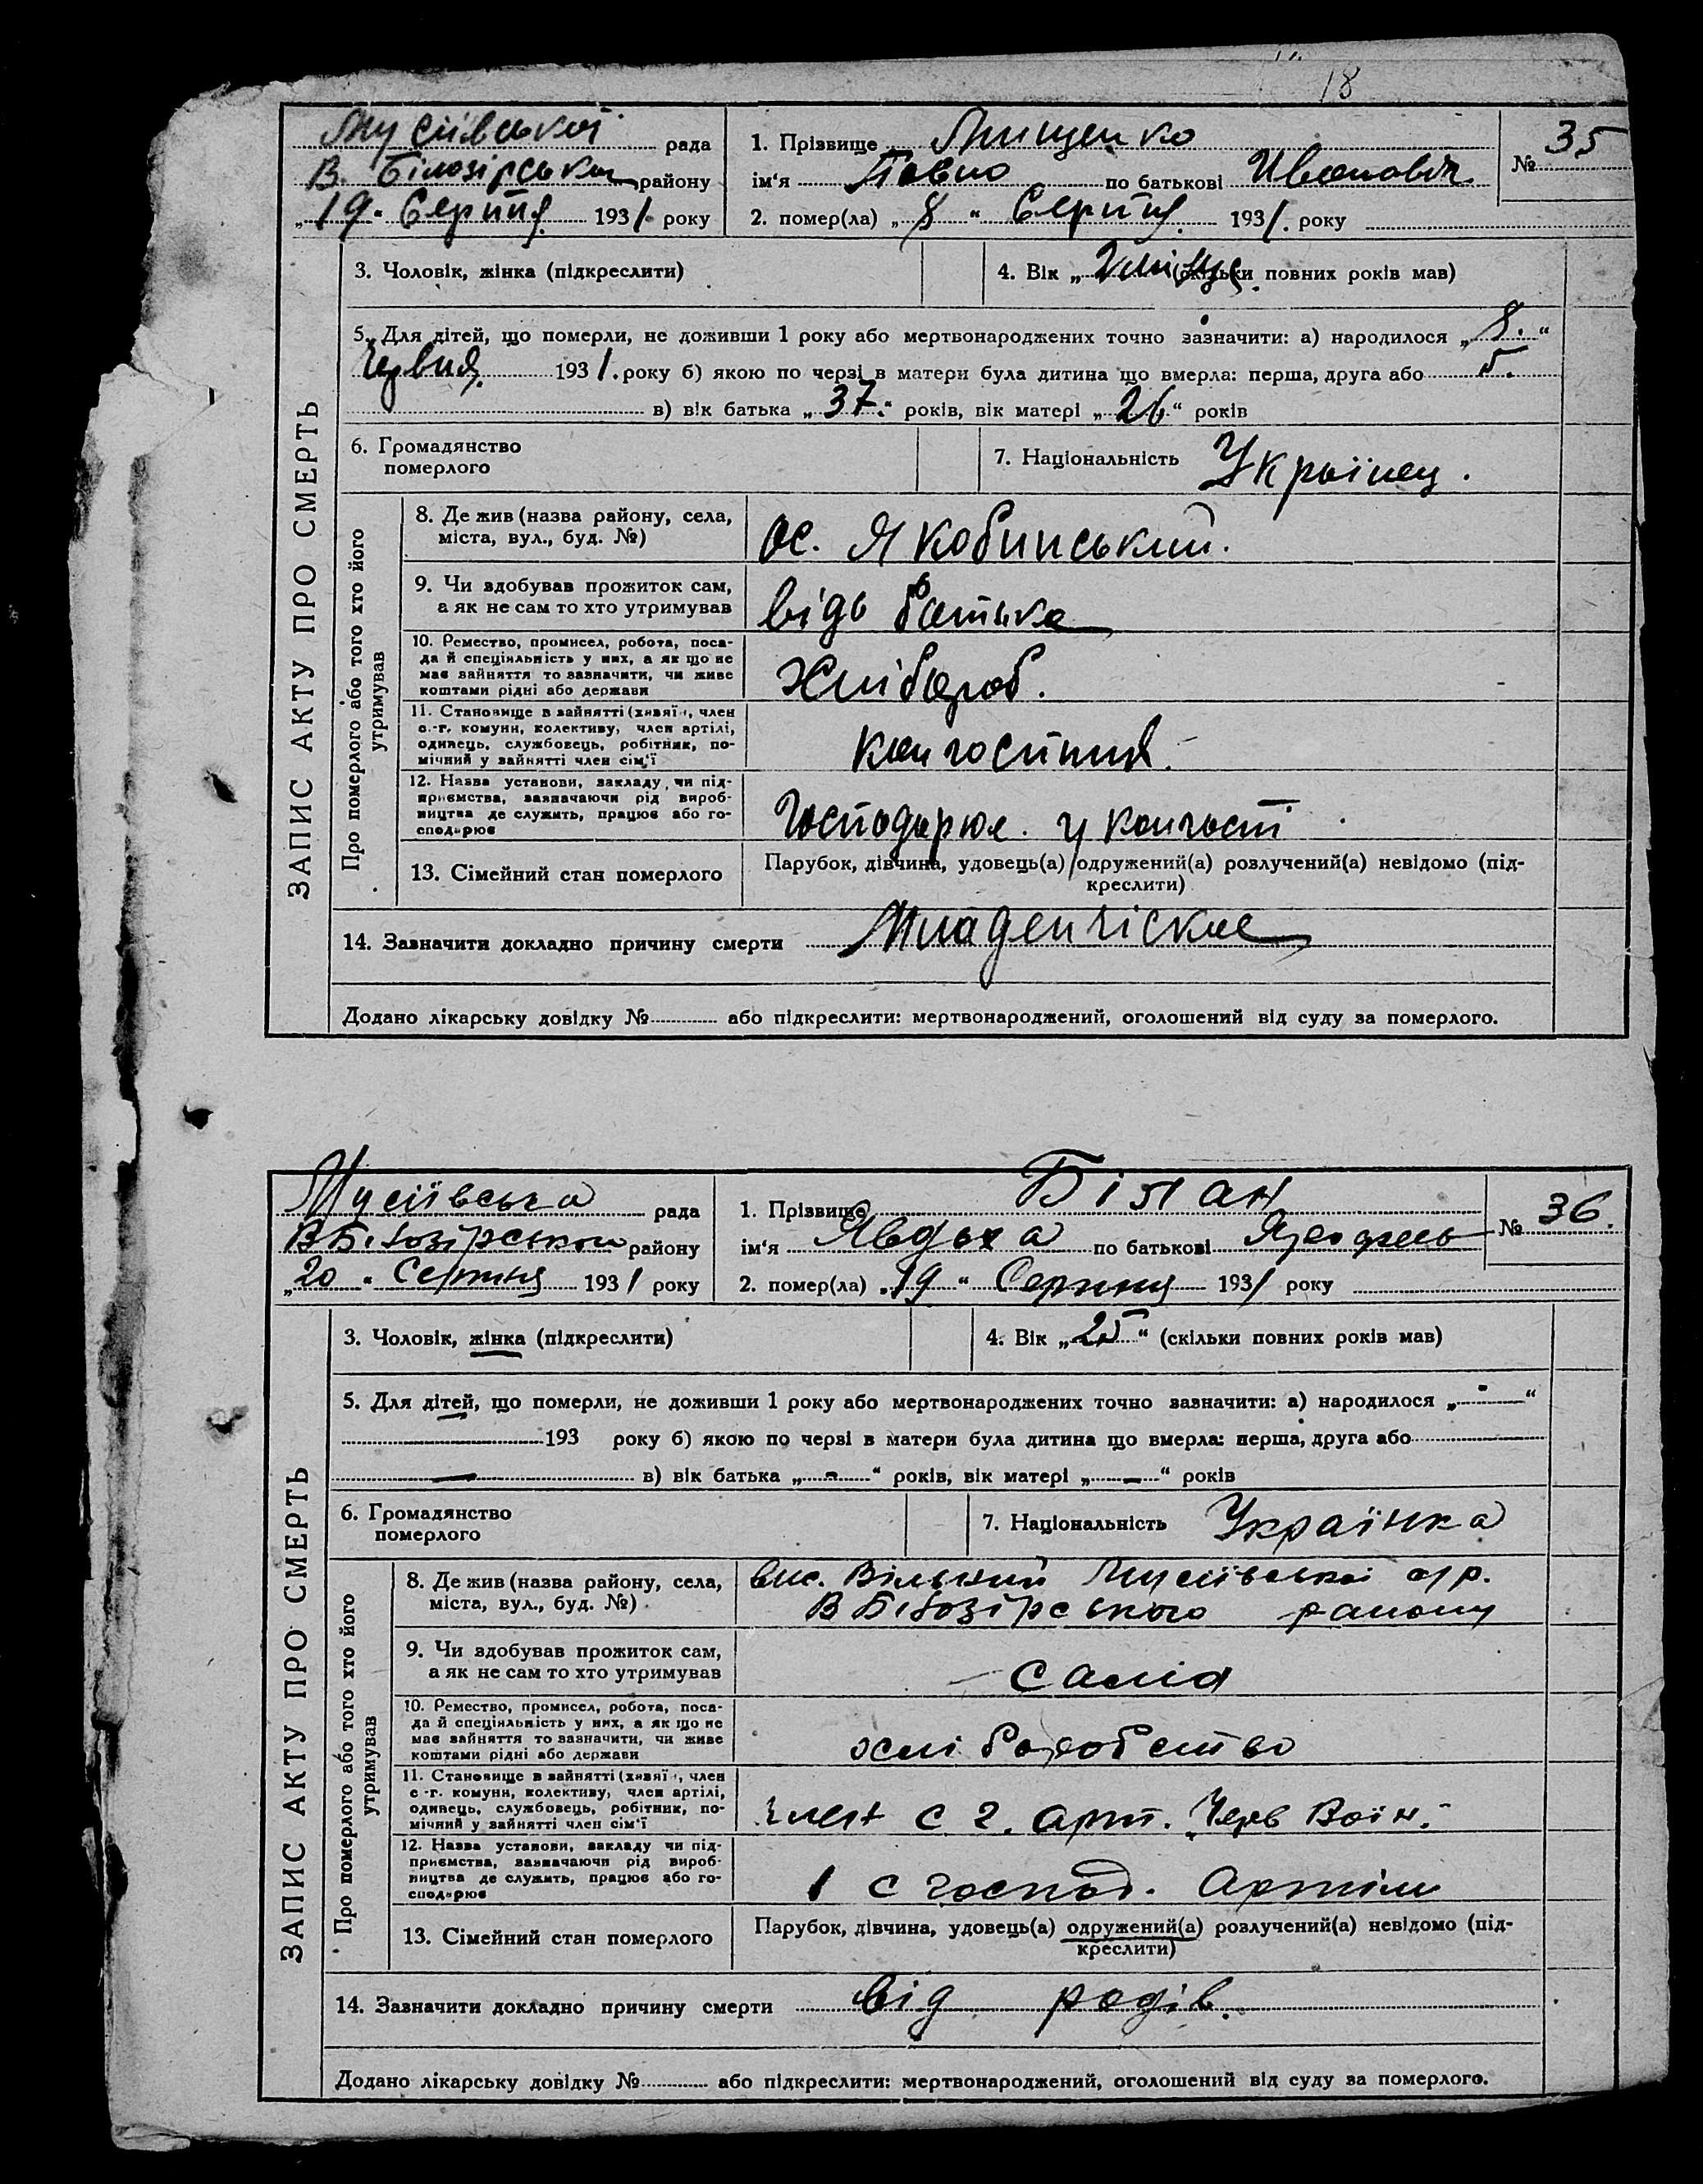 18
Мусіївської рада
В. Білозірськои району
„19“ Серпня 1931. року
1. Прізвище Мищенко
ім'я Павло по батькові Ивановіч
№ 35
2. помер(ла) „8“ Серпня. 1931. року
ЗАПИС АКТУ ПРО СМЕРТЬ
3. Чоловік, жінка (підкреслити)
4. Вік „2 місяця. (скільки повних років мав)
5. Для дітей, що померли, не доживши 1 року або мертвонароджених точно зазначити: а) народилося „8.“
Червня. 1931. року б) якою по черзі в матери була дитина що вмерла: перша, друга або 5.
в) вік батька „37.“ років, вік матері „26“ років
6. Громадянство
померлого
7. Національність Українец.
Про померлого або того хто його
утримував
8. Де жив (назва району, села,
міста, вул., буд. №)
ос. Якобинський.
9. Чи здобував прожиток сам,
а як не сам то хто утримував
відь батька
10. Ремество, промисел, робота, поса-
да й спеціяльність у них, а як що не
має зайняття то зазначити, чи живе
коштами рідні або держави
Хлібороб.
11. Становище в зайнятті (хазяїн, член
с.-г. комуни, колективу, член артілі,
одинець, службовець, робітник, по-
мічний у зайнятті член сім'ї
колгоспник.
12. Назва установи, закладу, чи під-
приємства, зазначаючи рід вироб-
ництва де служить, працює або го-
сподарює
Господарюе. у колгоспі
13. Сімейний стан померлого
Парубок, дівчина, удовець(а) одружений(а) розлучений(а) невідомо (під-
креслити)
14. Зазначити докладно причину смерти Младенчіское
Додано лікарську довідку № або підкреслити: мертвонароджений, оголошений від суду за померлого.
Мусіївська рада
В Білозірськои району
„20“ Серпня 1931 року
1. Прізвище Білан
ім'я Явдоха по батькові
№ 36.
2. помер(ла) „19“ Серпня 1931 року
ЗАПИС АКТУ ПРО СМЕРТЬ
3. Чоловік, жінка (підкреслити)
4. Вік „25“ (скільки повних років мав)
5. Для дітей, що померли, не доживши 1 року або мертвонароджених точно зазначити: а) народилося „-“
193 року б) якою по черзі в матери була дитина що вмерла: перша, друга або
— в) вік батька „-“ років, вік матері „-“ років
6. Громадянство
померлого
7. Національність Українка
Про померлого або того хто його
утримував
8. Де жив (назва району, села,
міста, вул., буд. №)
вис. Вільний Мусіївської с/р.
В Білозірського району
9. Чи здобував прожиток сам,
а як не сам то хто утримував
сама
10. Ремество, промисел, робота, поса-
да й спеціяльність у них, а як що не
має зайняття то зазначити, чи живе
коштами рідні або держави
хліборобство
11. Становище в зайнятті (хазяїн, член
с.-г. комуни, колективу, член артілі,
одинець, службовець, робітник, по-
мічний у зайнятті член сім'ї
член с г. арт. „Черв Воін.“
12. Назва установи, закладу чи під-
приємства, зазначаючи рід вироб-
ництва де служить, працює або го-
сподарює
с господ. Артіли
13. Сімейний стан померлого
Парубок, дівчина, удовець(а) одружений(а) розлучений(а) невідомо (під-
креслити)
14. Зазначити докладно причину смерти від родів.
Додано лікарську довідку № або підкреслити: мертвонароджений, оголошений від суду за померлого.